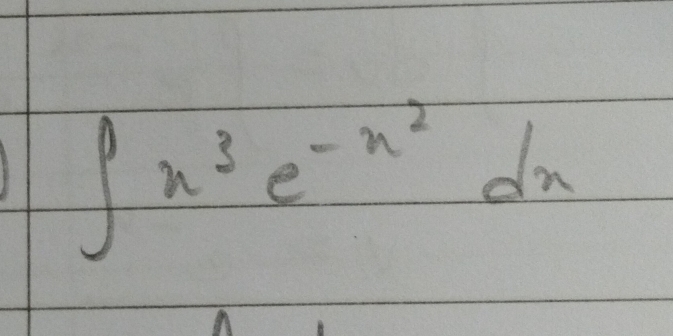 ) ∫ x³ e^{-x²} dx